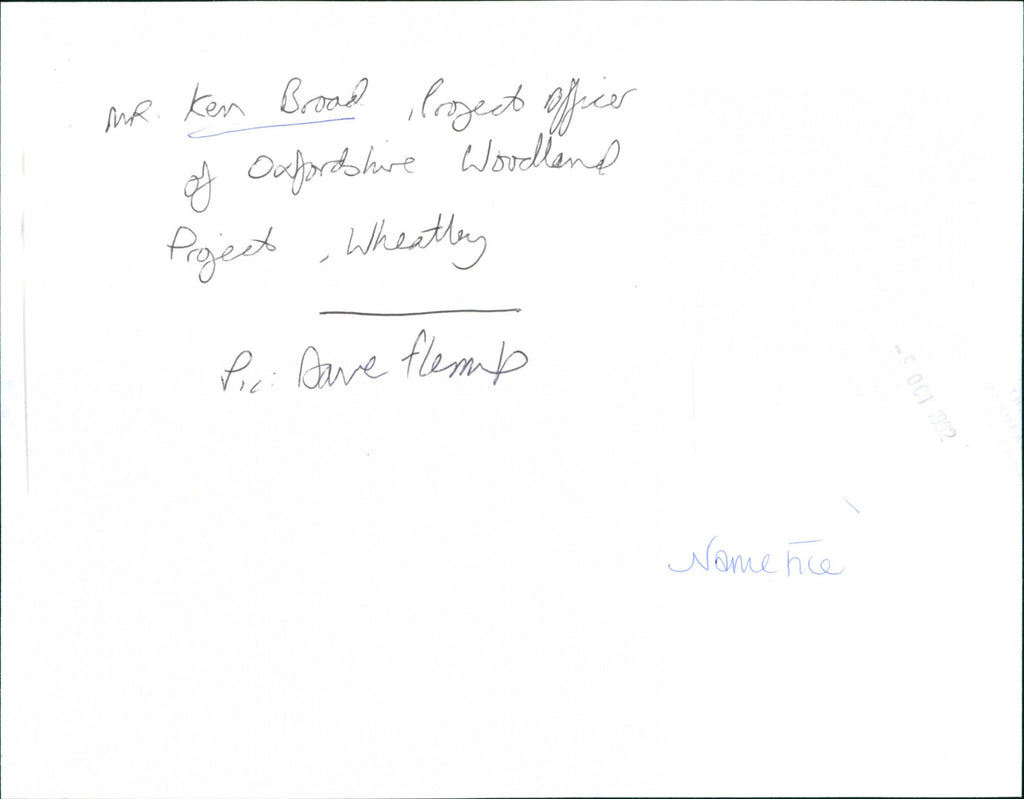 MR. Ken Broad, Project Officer
of Oxfordshire Woodland
Project, Wheatley
Pic: Dave Fleming
OCT 1992
Name File